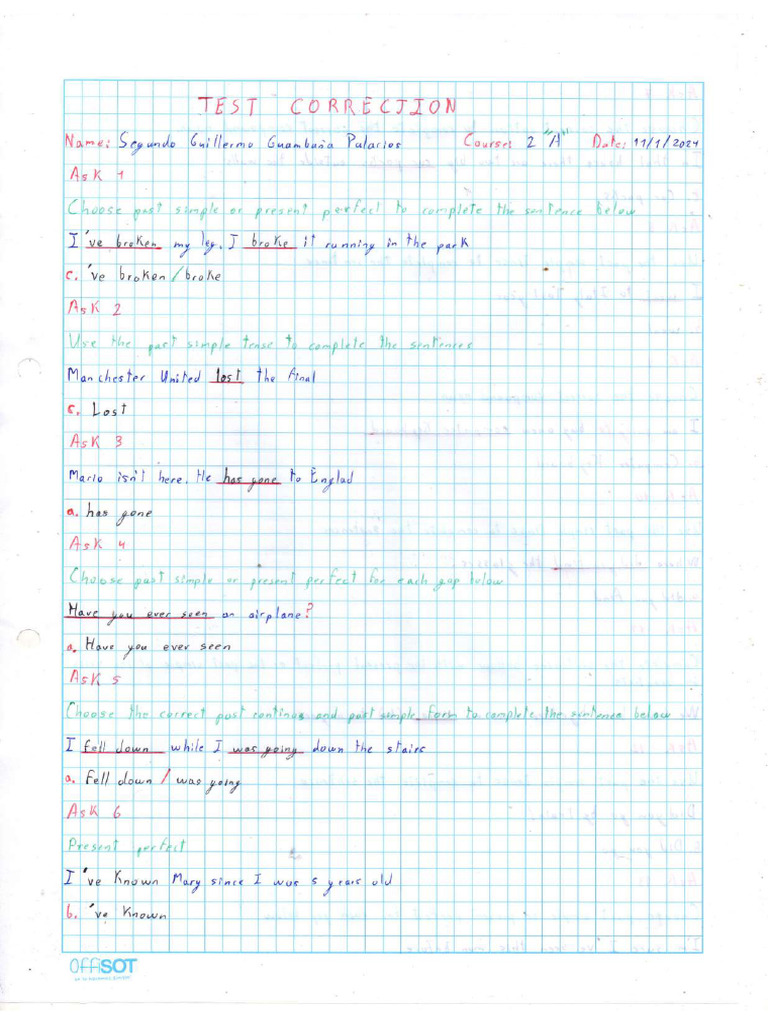 TEST CORRECTION
Name: Segundo Guillermo Guambaña Palacios Course: 2 "A" Date: 11/1/2024
Ask 1
Choose past simple or present perfect to complete the sentence below
I 've broken my leg. I broke it running in the park
c. 've broken / broke
Ask 2
Use the past simple tense to complete the sentences
Manchester United lost the final
c. Lost
Ask 3
Mario isn't here. He has gone to Englad
a. has gone
Ask 4
Choose past simple or present perfect for each gap below
Have you ever seen an airplane?
a. Have you ever seen
Ask 5
Choose the correct past continus and past simple form to complete the sentence below
I fell down while I was going down the stairs
a. Fell down / was going
Ask 6
Present perfect
I 've Known Mary since I was 5 years old
b. 've Known
OFFISOT